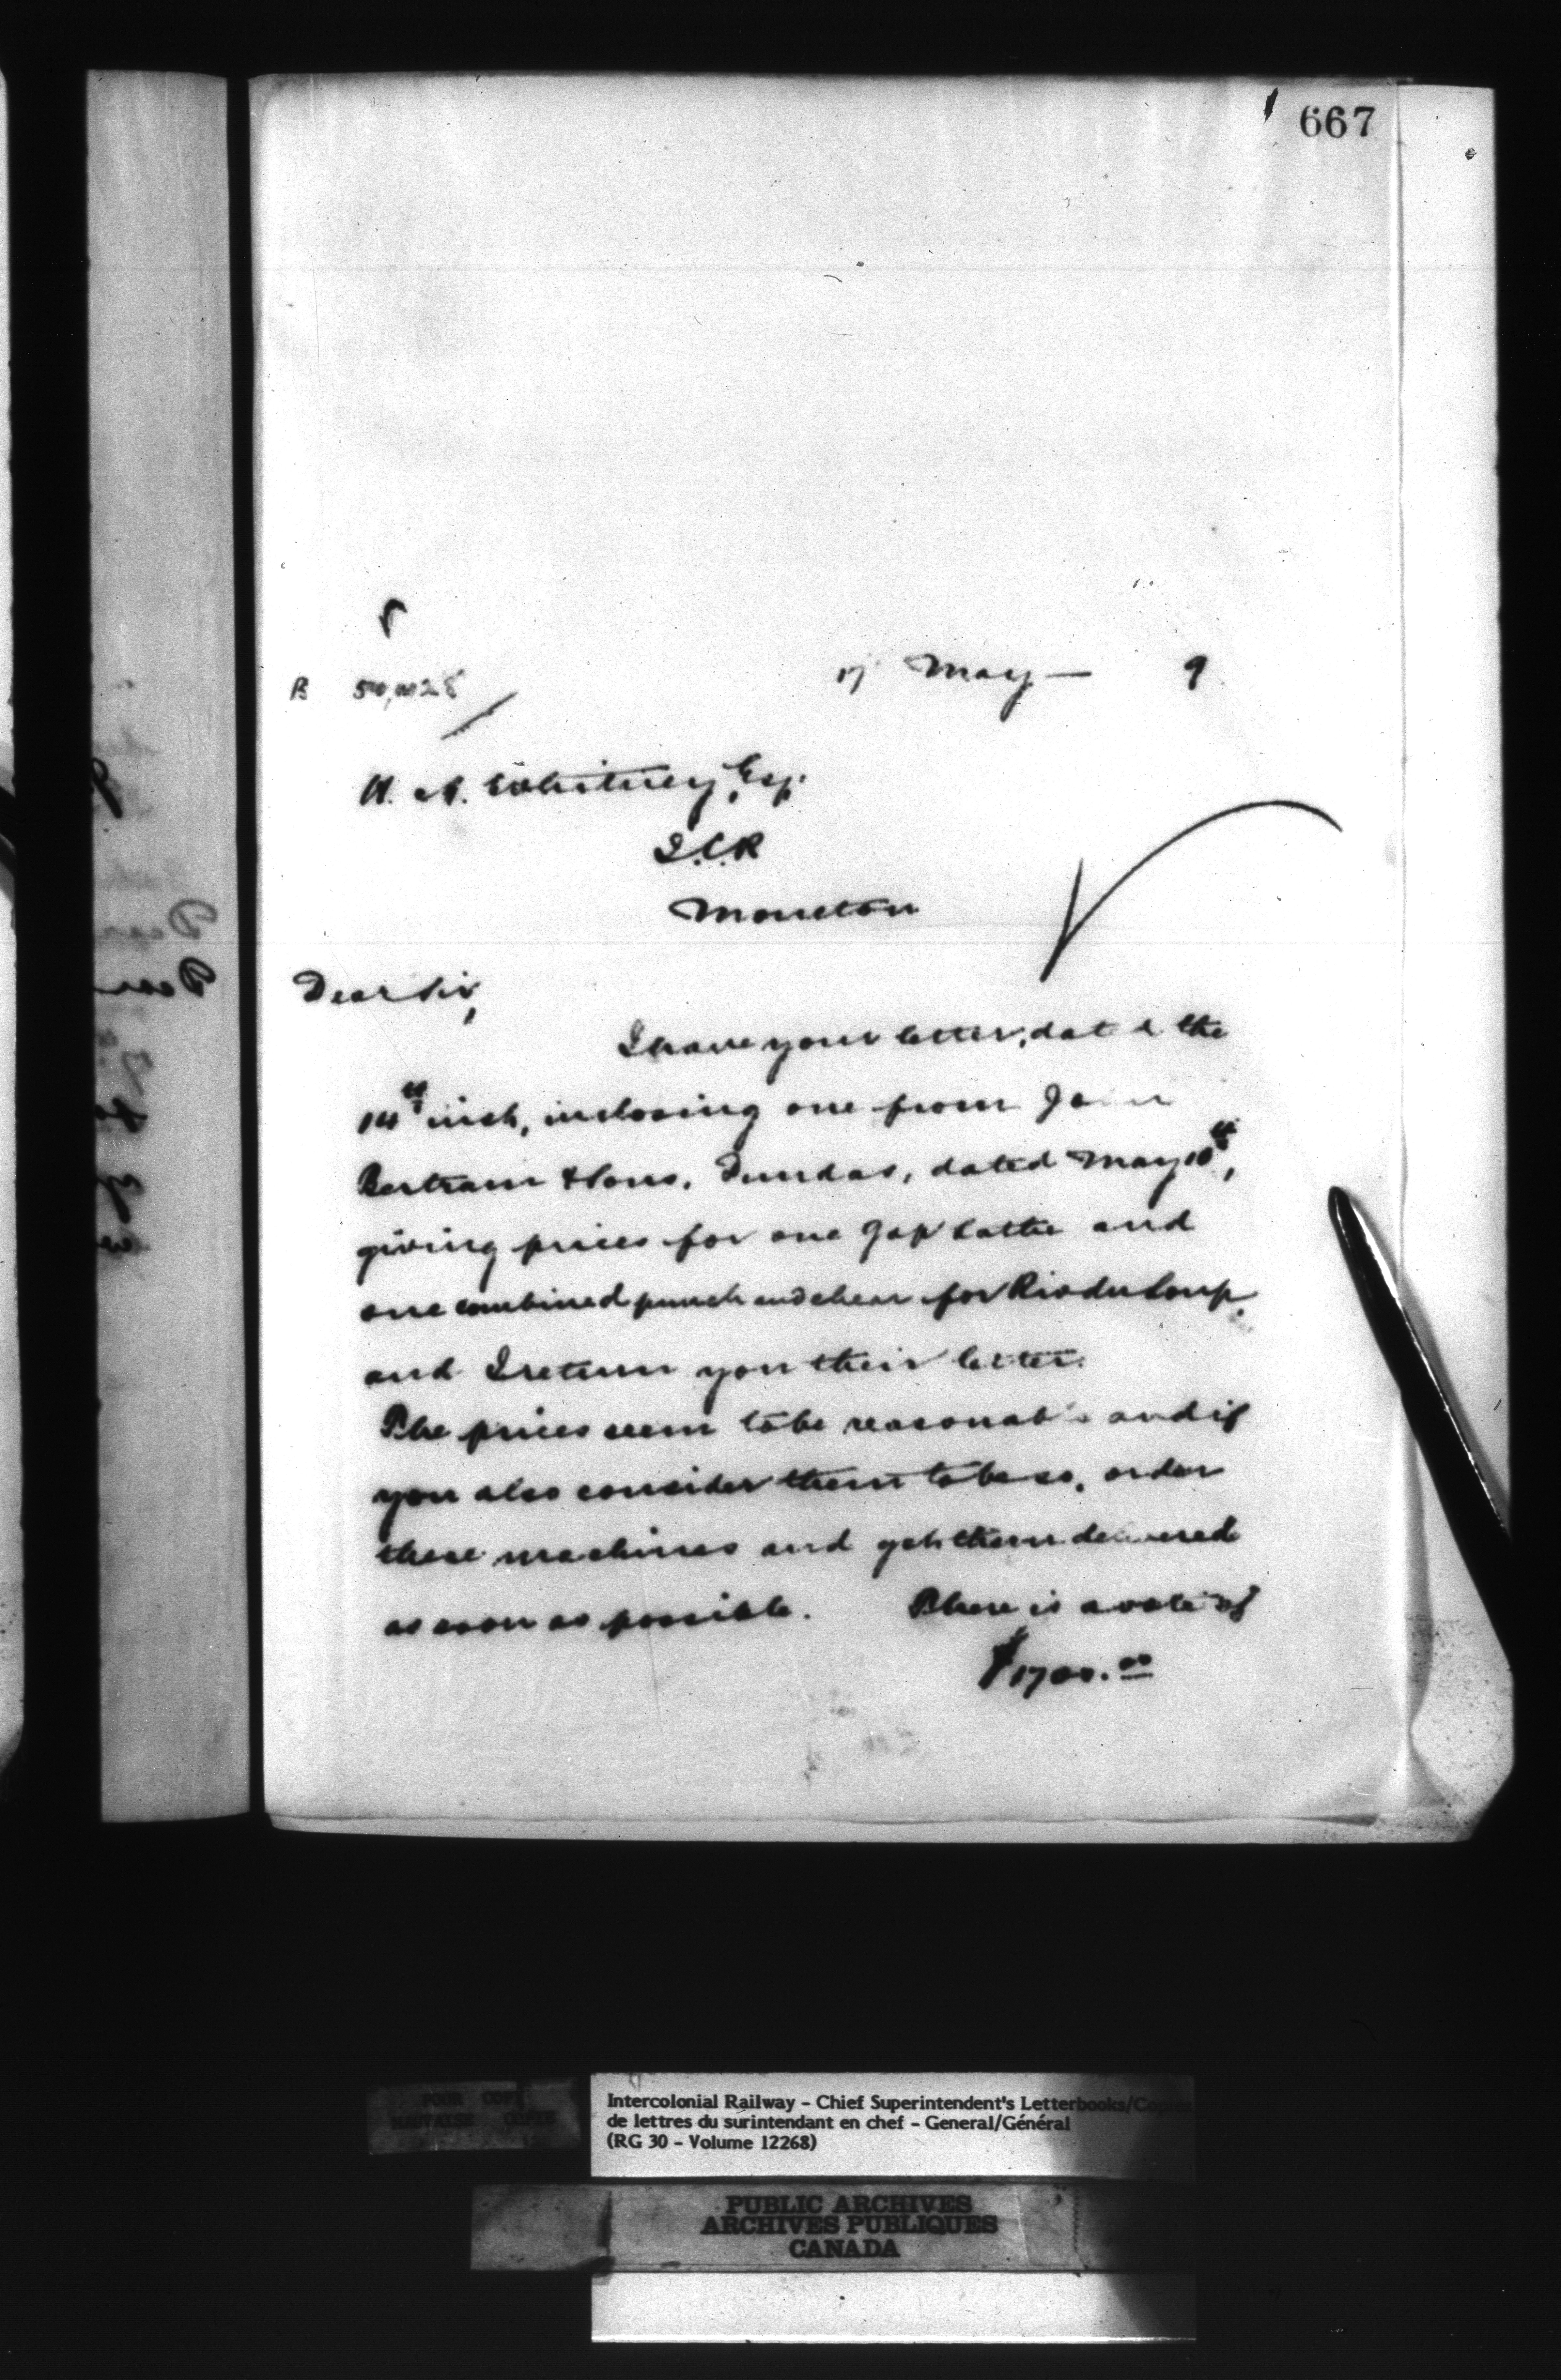 667
B 50,028
17 May — 9
H. A. Whitney, Esq.
I.C.R
Moncton
Dear Sir,
I have your letter, dated the
14th inst, inclosing one from John
Bertram & Sons, Dundas, dated May 10th,
giving prices for one Gap lathe and
one combined punch and shear for Riv du Loup
and I return you their letter.
The prices seem to be reasonable and if
you also consider them to be so, order
these machines and get them delivered
as soon as possible. There is a vote of
$1700.00
POOR COPY
MAUVAISE COPIE
Intercolonial Railway - Chief Superintendent's Letterbooks/Copies
de lettres du surintendant en chef - General/Général
(RG 30 - Volume 12268)
PUBLIC ARCHIVES
ARCHIVES PUBLIQUES
CANADA